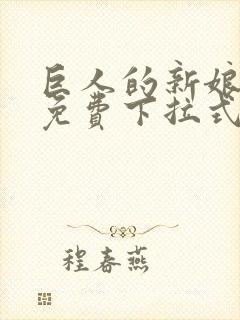 巨人的新娘
免费下拉式
程春燕